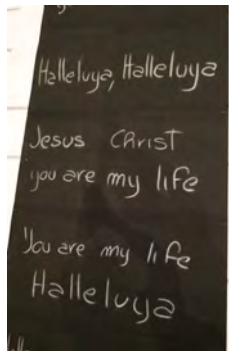 Halleluya, Halleluya
Jesus Christ
you are my life
You are my life
Halleluya